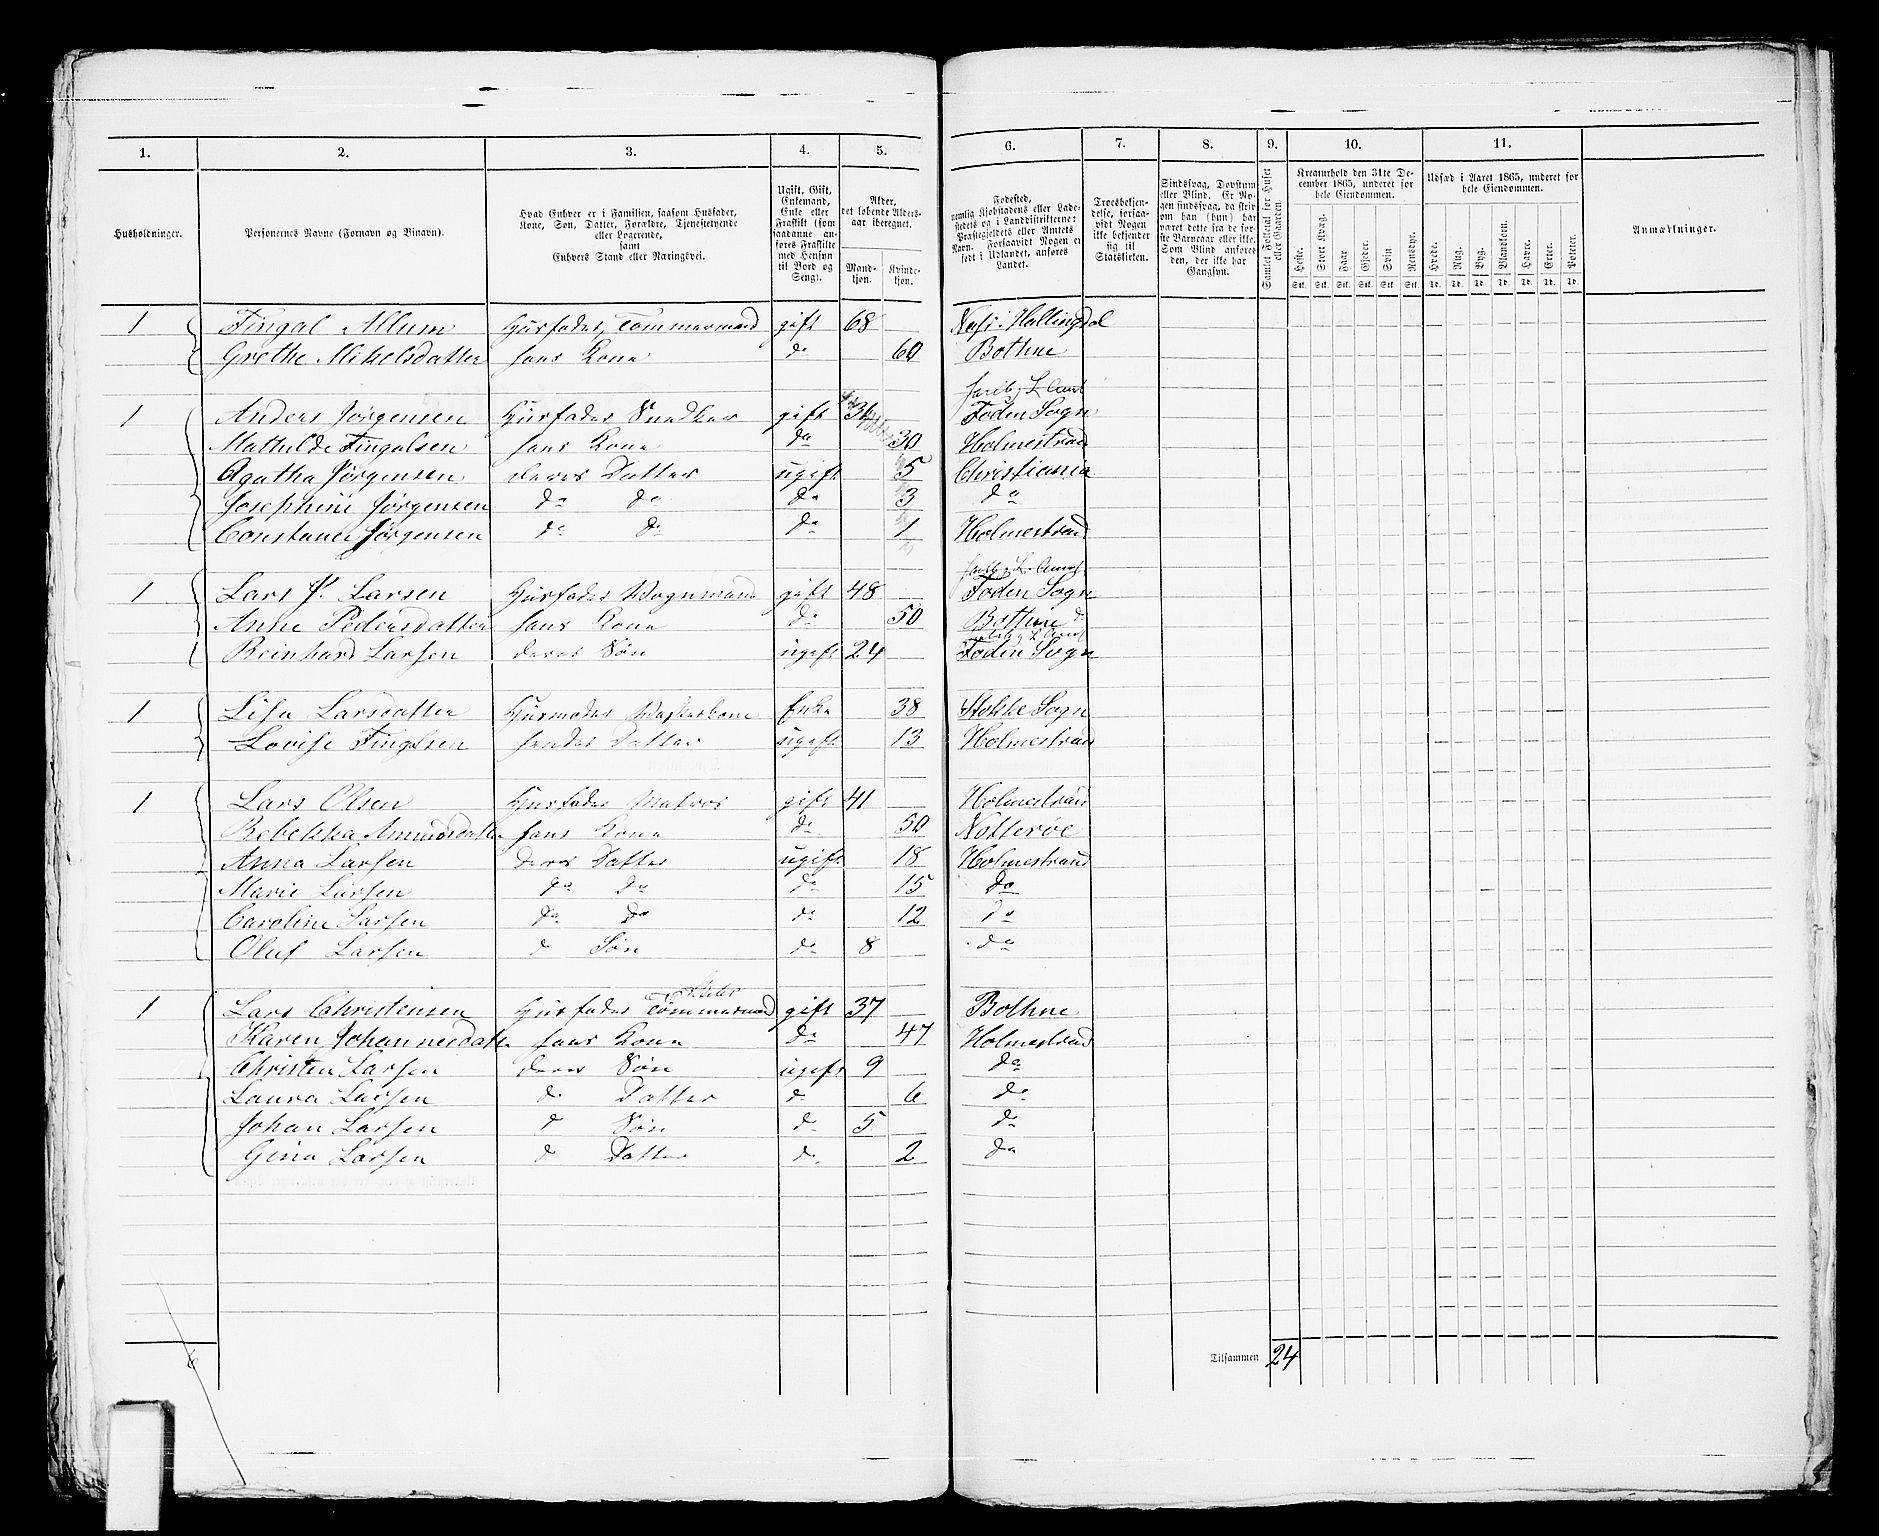 1. 2. 3. 4. 5. 6. 7. 8. 9. 10. 11.
Husholdninger.
Personernes Navne (Fornavn og Tilnavn).
Hvad Enhver er i Familien, saasom Husfader,
Kone, Søn, Datter, Forældre, Tjenestetyende
eller Logerende,
samt
Enhvers Stand eller Næringsvei.
Ugift, Gift,
Enkemand,
Enke eller
Fraskilt (som
saadanne an-
føres Fraskilte
med Hensyn
til Bord og
Seng).
Alder,
det løbende Alders-
aar iberegnet.
Mand-
kjøn.
Kvinde-
kjøn.
Fødested,
nemlig Kjøbstadens eller Lade-
stedets og i Landdistrikterne:
Præstegjeldets eller Amtets
Navn. Forsaavidt Nogen er
født i Udlandet, anføres
Landet.
Troesbekjen-
delse, forsaa-
vidt Nogen
ikke bekjender
sig til
Statskirken.
Sindssvag, Døvstum
eller Blind. Er No-
gen sindssvag, da skriv
om han (hun) har
været dette fra de før-
ste Barneaar eller ikke.
Som Blind anføres
den, der ikke har
Gangsyn.
Samlet Folketal for Huset
eller Gaarden.
Kreaturhold den 31te De-
cember 1865, underet for
hele Eiendommen.
Heste. Stort Kvæg. Faar. Gjeder. Svin Rensdyr.
Stk. Stk. Stk. Stk. Stk. Stk.
Udsæd i Aaret 1865, underet for
hele Eiendommen.
Hvede. Rug. Byg. Blandkorn. Havre. Erter. Poteter.
Td. Td. Td. Td. Td. Td. Td.
Anmærkninger.
1 Fingal Allum Husfader, Tømmermand gift 68 Næss i Hallingdal
Grethe Mikelsdatter hans Kone do 60 Bothne
Jarlb. L. Amt
1 Anders Jørgensen Husfader Snedker gift 36 Foden Sogn
Mathilde Fingalsen hans Kone do 30 Holmestrand
Agatha Jørgensen deres Datter ugift 5 Christiania
Josephine Jørgensen do do do 3 do
Constance Jørgensen do do do 1 Holmestrand
Jarlb. L. Amt
1 Lars P. Larsen Husfader Vognmand gift 48 Foden Sogn
Anne Pedersdatter hans Kone do 50 Bothne do
Jarlsb. L. Amt
Reinhard Larsen deres Søn ugift 24 Foden Sogn
1 Lise Larsdatter Husmoder Vaskerkone Enke 38 Stokke Sogn
Lovise Fingalsen hendes Datter ugift 13 Holmestrand
1 Lars Olsen Husfader Matros gift 41 Holmestrand
Rebekka Amundsdatter hans Kone do 50 Notterøe
Anna Larsen deres Datter ugift 18 Holmestrand
Marie Larsen do do do 15 do
Caroline Larsen do do do 12 do
Oluf Larsen d Søn do 8 do
1 Lars Christensen Husfader Tømmermand gift 37 Bothne
Karen Johannesdatter hans Kone do 47 Holmestrand
Christen Larsen deres Søn ugift 9 do
Laura Larsen d Datter do 6 do
Johan Larsen d Søn do 5 do
Gina Larsen d Datter do 2 do
6
Tilsammen 24